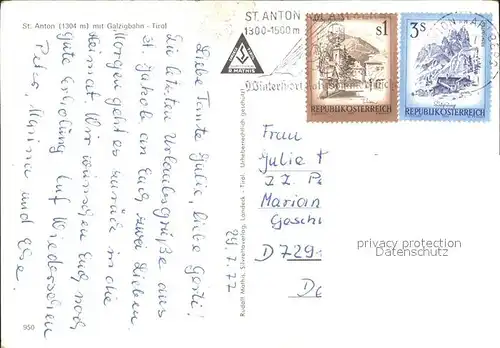 St. Anton (1304 m) mit Galzigbahn - Tirol
Liebe Tante Julie, liebe Gerti!
Die letzten Urlaubsgrüße aus
St. Jakob an Euch zwei Lieben.
Morgen geht es zurück in die
Heimat. Wir wünschen Euch noch
gute Erholung. Auf Wiedersehen
Peter, Marina und Else.
29.7.77
950
R. MATHIS
Rudolf Mathis, Silvretta-Verlag, Landeck - Tirol. Urheberrechtlich geschützt
ST. ANTON
1300-1500 m
Wintersport
S1
REPUBLIK ÖSTERREICH
3S
REPUBLIK ÖSTERREICH
Frau
Julie
ZZ. P
Marian
Gasch
D 729
privacy protection
Datenschutz